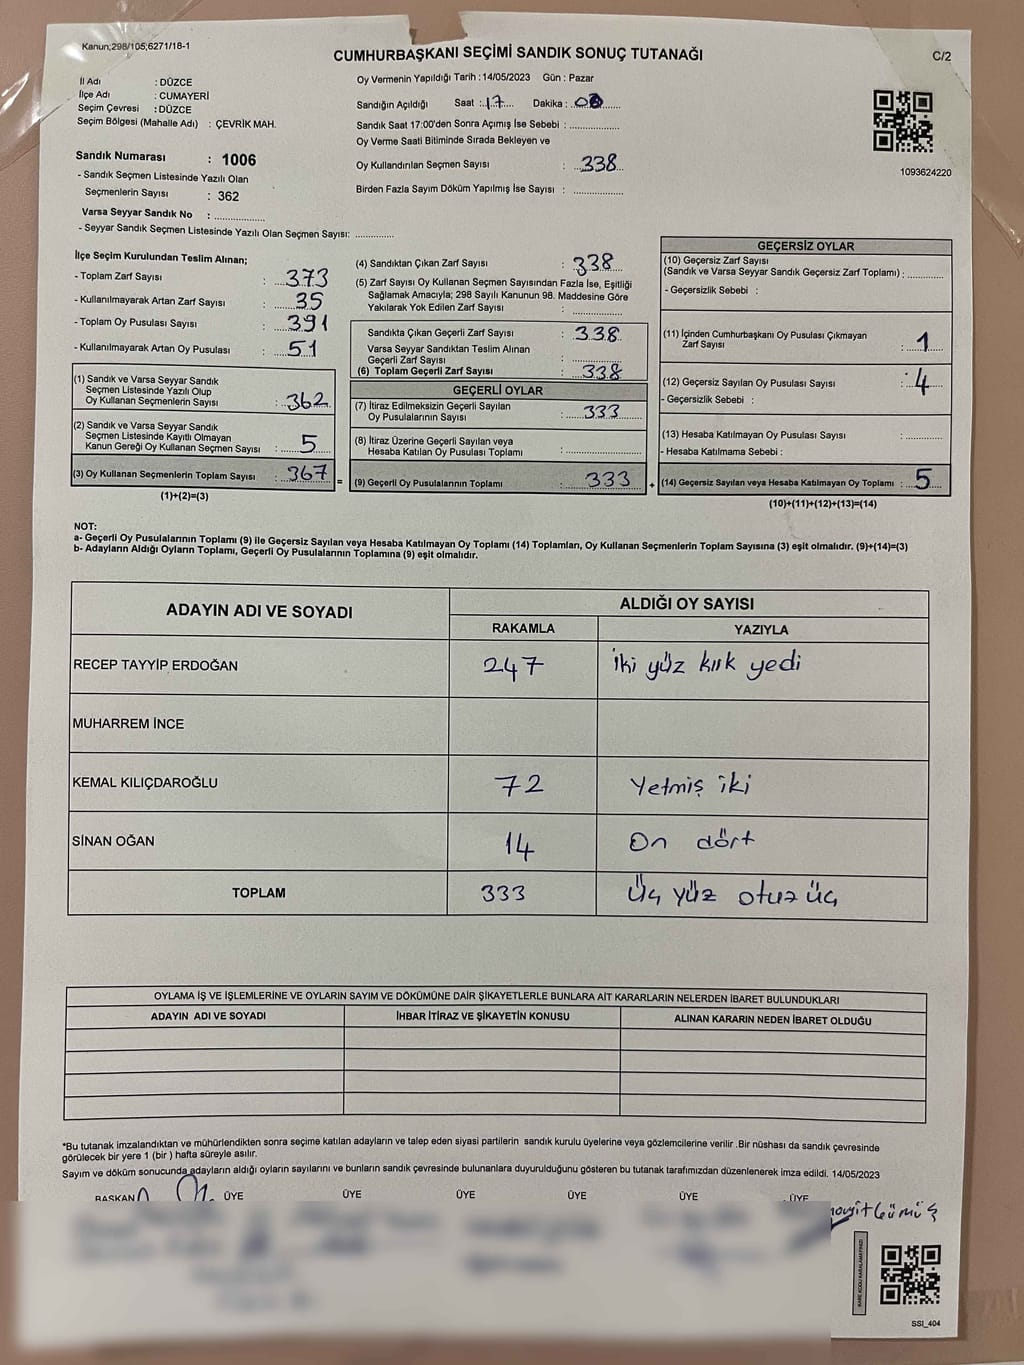 Kanun;298/105;6271/18-1
CUMHURBAŞKANI SEÇİMİ SANDIK SONUÇ TUTANAĞI
C/2
İl Adı : DÜZCE
İlçe Adı : CUMAYERİ
Seçim Çevresi : DÜZCE
Seçim Bölgesi (Mahalle Adı) : ÇEVRİK MAH.
Sandık Numarası : 1006
- Sandık Seçmen Listesinde Yazılı Olan
Seçmenlerin Sayısı : 362
Varsa Seyyar Sandık No : ..................
- Seyyar Sandık Seçmen Listesinde Yazılı Olan Seçmen Sayısı: ..............
Oy Vermenin Yapıldığı Tarih : 14/05/2023 Gün : Pazar
Sandığın Açıldığı Saat : 17 Dakika :
Sandık Saat 17:00'den Sonra Açımış İse Sebebi : ..................
Oy Verme Saati Bitiminde Sırada Bekleyen ve
Oy Kullandırılan Seçmen Sayısı : 338
Birden Fazla Sayım Döküm Yapılmış İse Sayısı : ..................
1093624220
İlçe Seçim Kurulundan Teslim Alınan;
- Toplam Zarf Sayısı : 373
- Kullanılmayarak Artan Zarf Sayısı : 35
- Toplam Oy Pusulası Sayısı : 391
- Kullanılmayarak Artan Oy Pusulası : 51
(1) Sandık ve Varsa Seyyar Sandık
Seçmen Listesinde Yazılı Olup
Oy Kullanan Seçmenlerin Sayısı : 362
(2) Sandık ve Varsa Seyyar Sandık
Seçmen Listesinde Kayıtlı Olmayan
Kanun Gereği Oy Kullanan Seçmen Sayısı : 5
(3) Oy Kullanan Seçmenlerin Toplam Sayısı : 367 =
(1)+(2)=(3)
(4) Sandıktan Çıkan Zarf Sayısı : 338
(5) Zarf Sayısı Oy Kullanan Seçmen Sayısından Fazla İse, Eşitliği
Sağlamak Amacıyla; 298 Sayılı Kanunun 98. Maddesine Göre
Yakılarak Yok Edilen Zarf Sayısı : ..................
Sandıkta Çıkan Geçerli Zarf Sayısı : 338
Varsa Seyyar Sandıktan Teslim Alınan
Geçerli Zarf Sayısı : ..................
(6) Toplam Geçerli Zarf Sayısı : 338
GEÇERLİ OYLAR
(7) İtiraz Edilmeksizin Geçerli Sayılan
Oy Pusulalarının Sayısı : 333
(8) İtiraz Üzerine Geçerli Sayılan veya
Hesaba Katılan Oy Pusulası Toplamı : ..................
(9) Geçerli Oy Pusulalarının Toplamı : 333 +
GEÇERSİZ OYLAR
(10) Geçersiz Zarf Sayısı
(Sandık ve Varsa Seyyar Sandık Geçersiz Zarf Toplamı) : ............
- Geçersizlik Sebebi :
(11) İçinden Cumhurbaşkanı Oy Pusulası Çıkmayan
Zarf Sayısı : 1
(12) Geçersiz Sayılan Oy Pusulası Sayısı : 4
- Geçersizlik Sebebi :
(13) Hesaba Katılmayan Oy Pusulası Sayısı : ............
- Hesaba Katılmama Sebebi :
(14) Geçersiz Sayılan veya Hesaba Katılmayan Oy Toplamı : 5
(10)+(11)+(12)+(13)=(14)
NOT:
a- Geçerli Oy Pusulalarının Toplamı (9) ile Geçersiz Sayılan veya Hesaba Katılmayan Oy Toplamı (14) Toplamları, Oy Kullanan Seçmenlerin Toplam Sayısına (3) eşit olmalıdır. (9)+(14)=(3)
b- Adayların Aldığı Oyların Toplamı, Geçerli Oy Pusulalarının Toplamına (9) eşit olmalıdır.
ADAYIN ADI VE SOYADI
ALDIĞI OY SAYISI
RAKAMLA YAZIYLA
RECEP TAYYİP ERDOĞAN 247 İki yüz kırk yedi
MUHARREM İNCE
KEMAL KILIÇDAROĞLU 72 Yetmiş iki
SİNAN OĞAN 14 On dört
TOPLAM 333 Üç yüz otuz üç
OYLAMA İŞ VE İŞLEMLERİNE VE OYLARIN SAYIM VE DÖKÜMÜNE DAİR ŞİKAYETLERLE BUNLARA AİT KARARLARIN NELERDEN İBARET BULUNDUKLARI
ADAYIN ADI VE SOYADI İHBAR İTİRAZ VE ŞİKAYETİN KONUSU ALINAN KARARIN NEDEN İBARET OLDUĞU
*Bu tutanak imzalandıktan ve mühürlendikten sonra seçime katılan adayların ve talep eden siyasi partilerin sandık kurulu üyelerine veya gözlemcilerine verilir .Bir nüshası da sandık çevresinde
görülecek bir yere 1 (bir ) hafta süreyle asılır.
Sayım ve döküm sonucunda adayların aldığı oyların sayılarını ve bunların sandık çevresinde bulunanlara duyurulduğunu gösteren bu tutanak tarafımızdan düzenlenerek imza edildi. 14/05/2023
BAŞKAN ÜYE ÜYE ÜYE ÜYE ÜYE ÜYE
Gümüş
KARE KODU KARALAMAYINIZ!
SSI_404